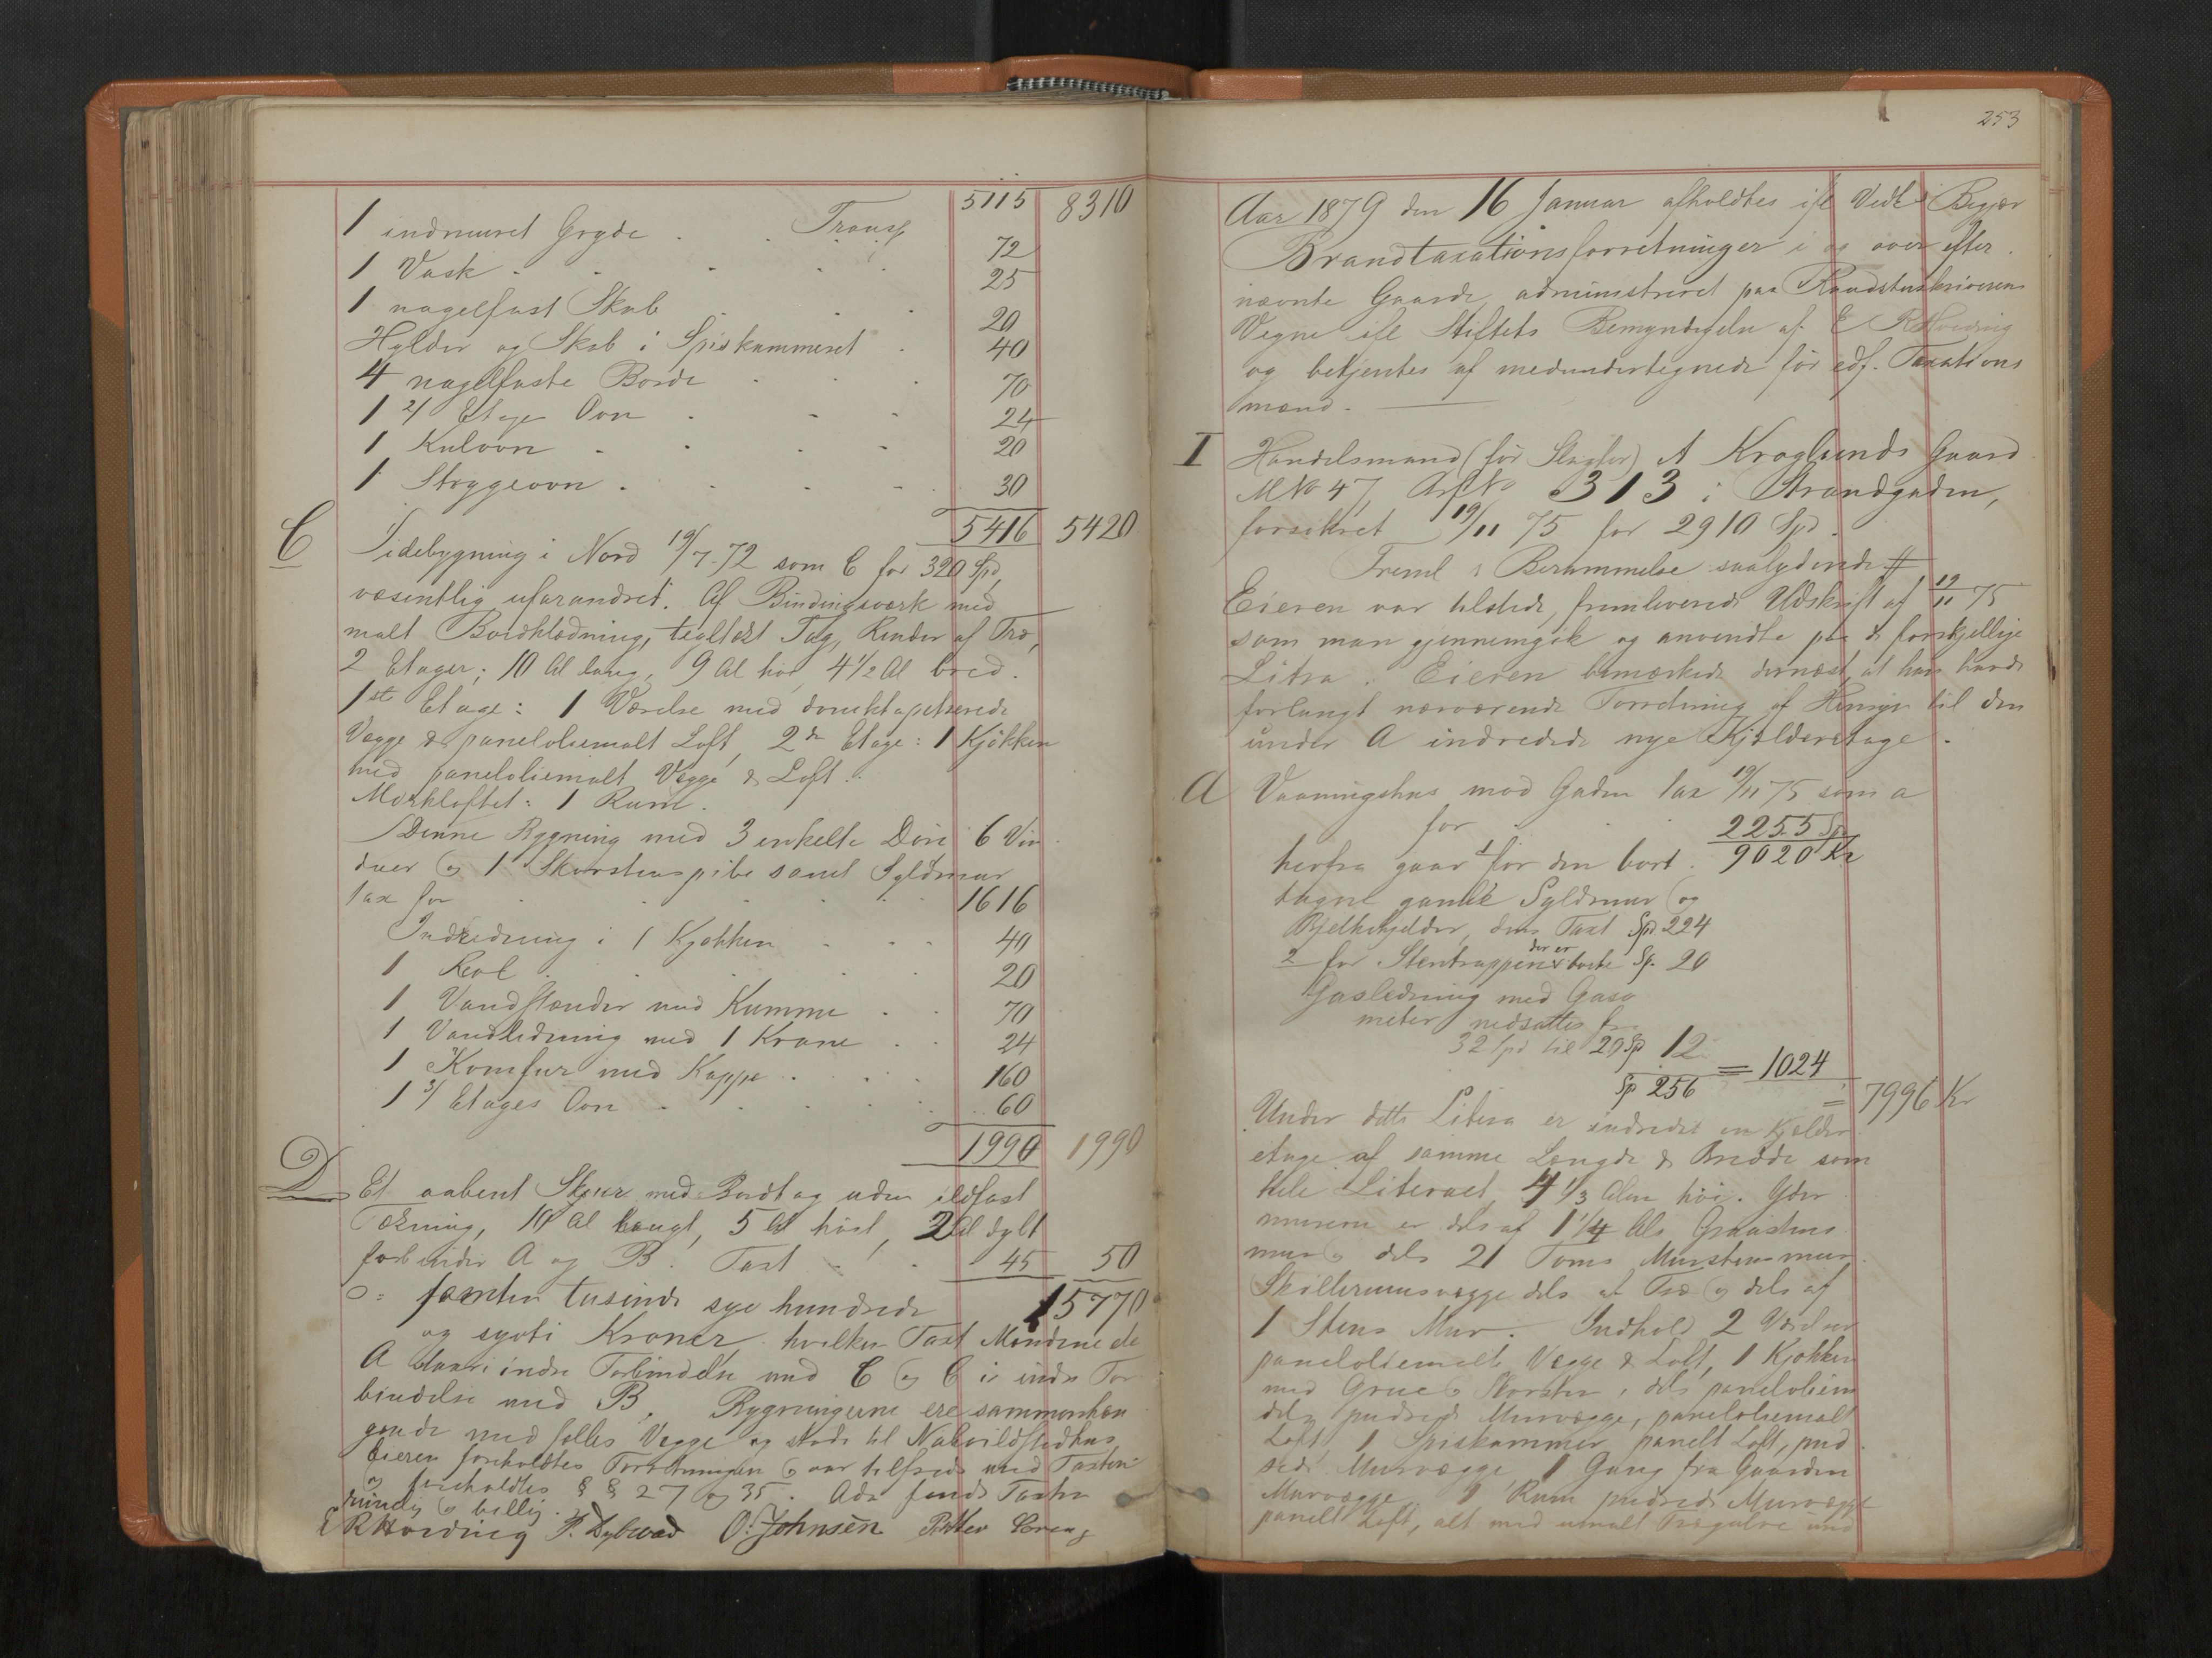 Transp 5115 8310
1 indmuret Gryde . . 72
1 Vask . . . . 25
1 nagelfast Skab . . . 20
Hylder og Skab i Spiskammeret . 40
4 nagelfaste Borde . . . 70
1 2/ Etage Ovn . . . 24
1 Kulovn . . . . 20
1 Strygeovn . . . . 30
5416 5420
C Sidebygning i Nord 19/7-72 som C for 320 Spd,
væsentlig uforandret. Af Bindingsværk med
malt Bordklædning, tegltækt Tag, Render af Træ,
2 Etager; 10 Al lang, 9 Al høi, 4 1/2 Al bred.
1ste Etage: 1 Værelse med betrukne
Vægge & paneloliemalt Loft, 2den Etage: 1 Kjøkken
med paneloliemalt Vægge & Loft.
Mørkloftet: 1 Rum.
Denne Bygning med 3 enkelte Døre 6 Vin
duer og 1 Skorstenspibe samt Syldmur
tax for . . . . . 1616
Indredning i 1 Kjøkken . . . 40
1 Reol . . . . 20
1 Vandstænder med Kumme . . 70
1 Vandledning med 1 Krane . . 24
1 Komfur med Kappe . . . 160
1 3/ Etages Ovn . . . . 60
1990 1990
D Et aabent Skur med Bordtag uden ildfast
Tækning, 10 Al langt, 5 Al høit, 2 Al dybt
forbinder A og B. Taxt . . 45 50
o: femten tusinde syv hundrede 15770
og sytti Kroner hvilken Taxt Mændene de
A staar i indre Forbindelse med C og C i indre For
bindelse med B. Bygningerne ere sammenhæn
gende med fælles Vægge og støde til Naboildstedhus
Eieren foreholdtes Forretningen og var tilfreds med Taxten
og foreholdtes § § 27 og 35. fandt Taxten
rimelig og billig.
E R Hvoslef P. Dybwad O. Johnsen Petter

253
Aar 1879 den 16 Januar afholdtes ifl Vedt s Begjær
Brandtaxationsforretninger i og over efter
nævnte Gaarde, administreret paa Raadstuskriverens
Vegne ifl Stiftets Bemyndigelse af E R
og betjentes af medundertegnede før edf. Taxations
mænd.
I Handelsmand (før Slagter) A Kroglunds Gaard
MNo 47, AssNo 313 i Strandgaden,
forsikret 19/11 75 for 2910 Spd.
Freml s Berammelse saalydende #
Eieren var tilstede, fremleverede Udskrift af 19/11 75
som man gjennemgik og anvendte paa de forskjellige
Litra. Eieren bemærkede dernæst, at han havde
forlangt nærværende Forretning af Hensyn til den
under A indredede nye Kjælderetage.
A Vaaningshus mod Gaden tax 19/11 75 som a
for . . . 2255 Sp
herfra gaar 1 for den bort 9020 Kr
tagne gamle Syldmur og
Bjelkekjælder, dens Taxt Spd 224
2 for Stentrappen der er borte Sp. 20
Gasledning med Gaso
meter nedsattes fra
32 Spd til 20 Sp 12
Sp 256 = 1024
= 7996 Kr
Under dette Litera er indredet en Kjælder
etage af samme Længde & Bredde som
hele Literaet, 4 1/3 Alen høi. Yder
murene er dels af 1 1/4 Als Graastens
mur og dels 21 Toms Murstensmur.
Skillerumsvægge dels af Træ og dels af
1 Stens Mur. Indhold 2 Værelser
paneloliemalt Vægge & Loft, 1 Kjøkken
med Grue & Skorsten, dels paneloliem
dels pudsede Murvægge, paneloliemalt
Loft, 1 Spiskammer, panelt Loft, pud
sede Murvægge, 1 Gang fra Gaarden
Murvægge 1 Rum pudsede Murvægge
panelt Loft, alt med umalt Trægulve und